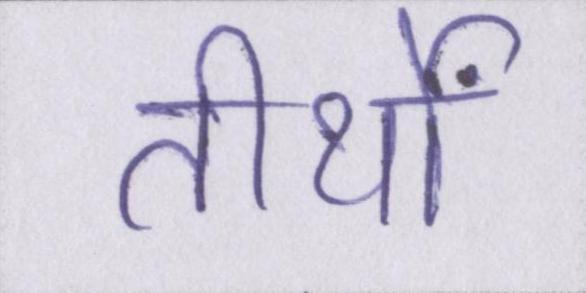 तीर्थों